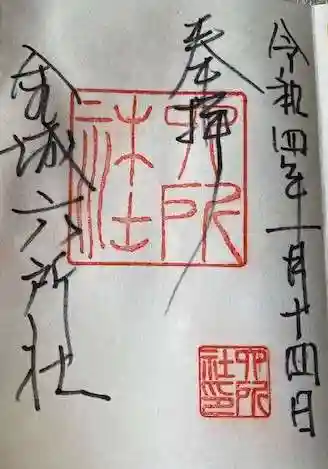 令和四年一月十四日
奉拝
金城六所社
六所
六所社印